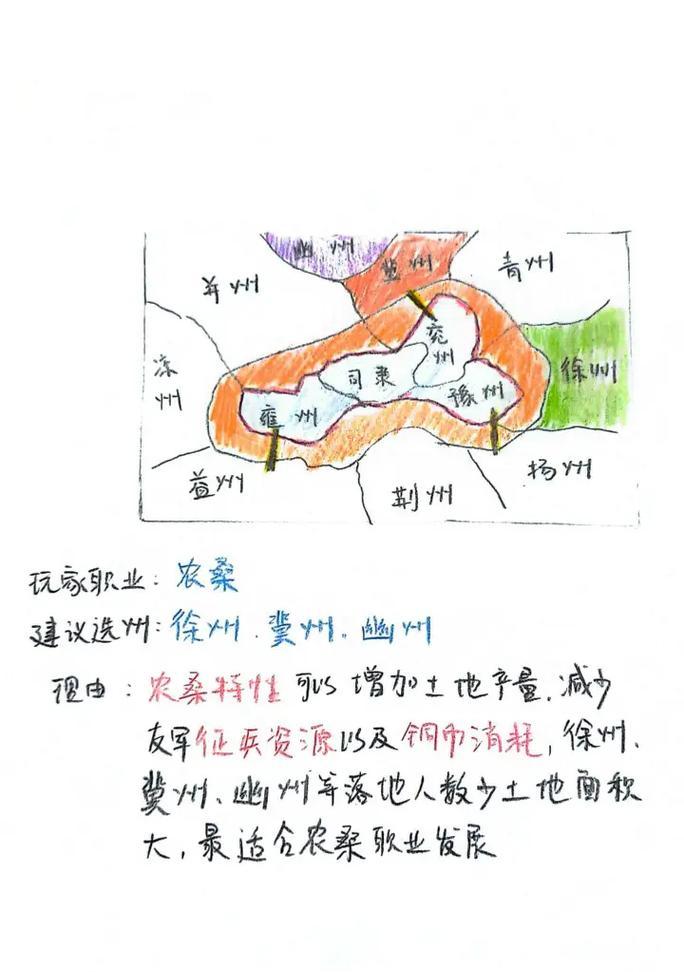 幽州
冀州
青州
并州
兖州
凉州
司隶
徐州
豫州
雍州
益州
荆州
扬州
玩家职业：农桑
建议选州：徐州、冀州、幽州
理由：农桑特性可以增加土地产量、减少
友军征兵资源以及铜币消耗，徐州、
冀州、幽州等落地人数少土地面积
大，最适合农桑职业发展